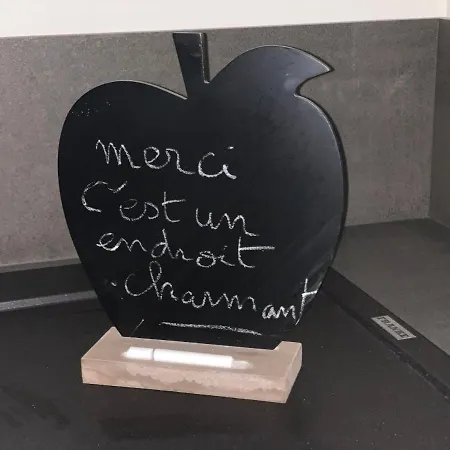 merci
C'est un
endroit
charmant